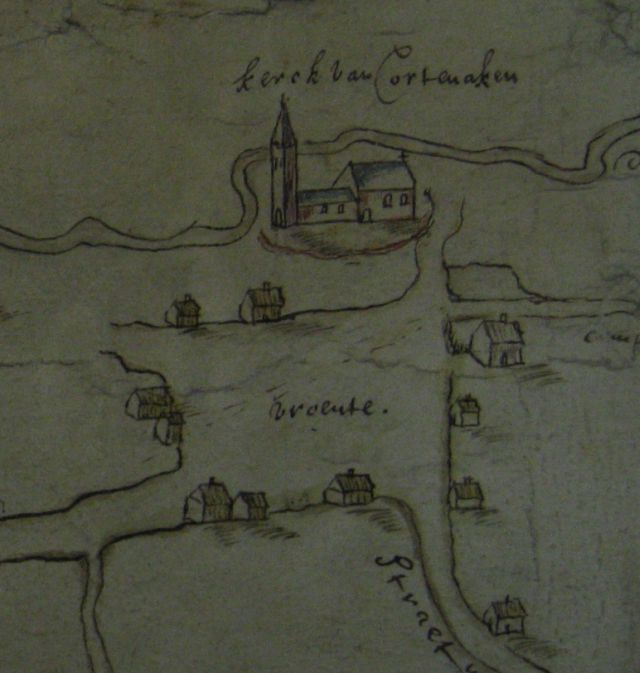 kerck van Cortenaken
vroente.
Straet